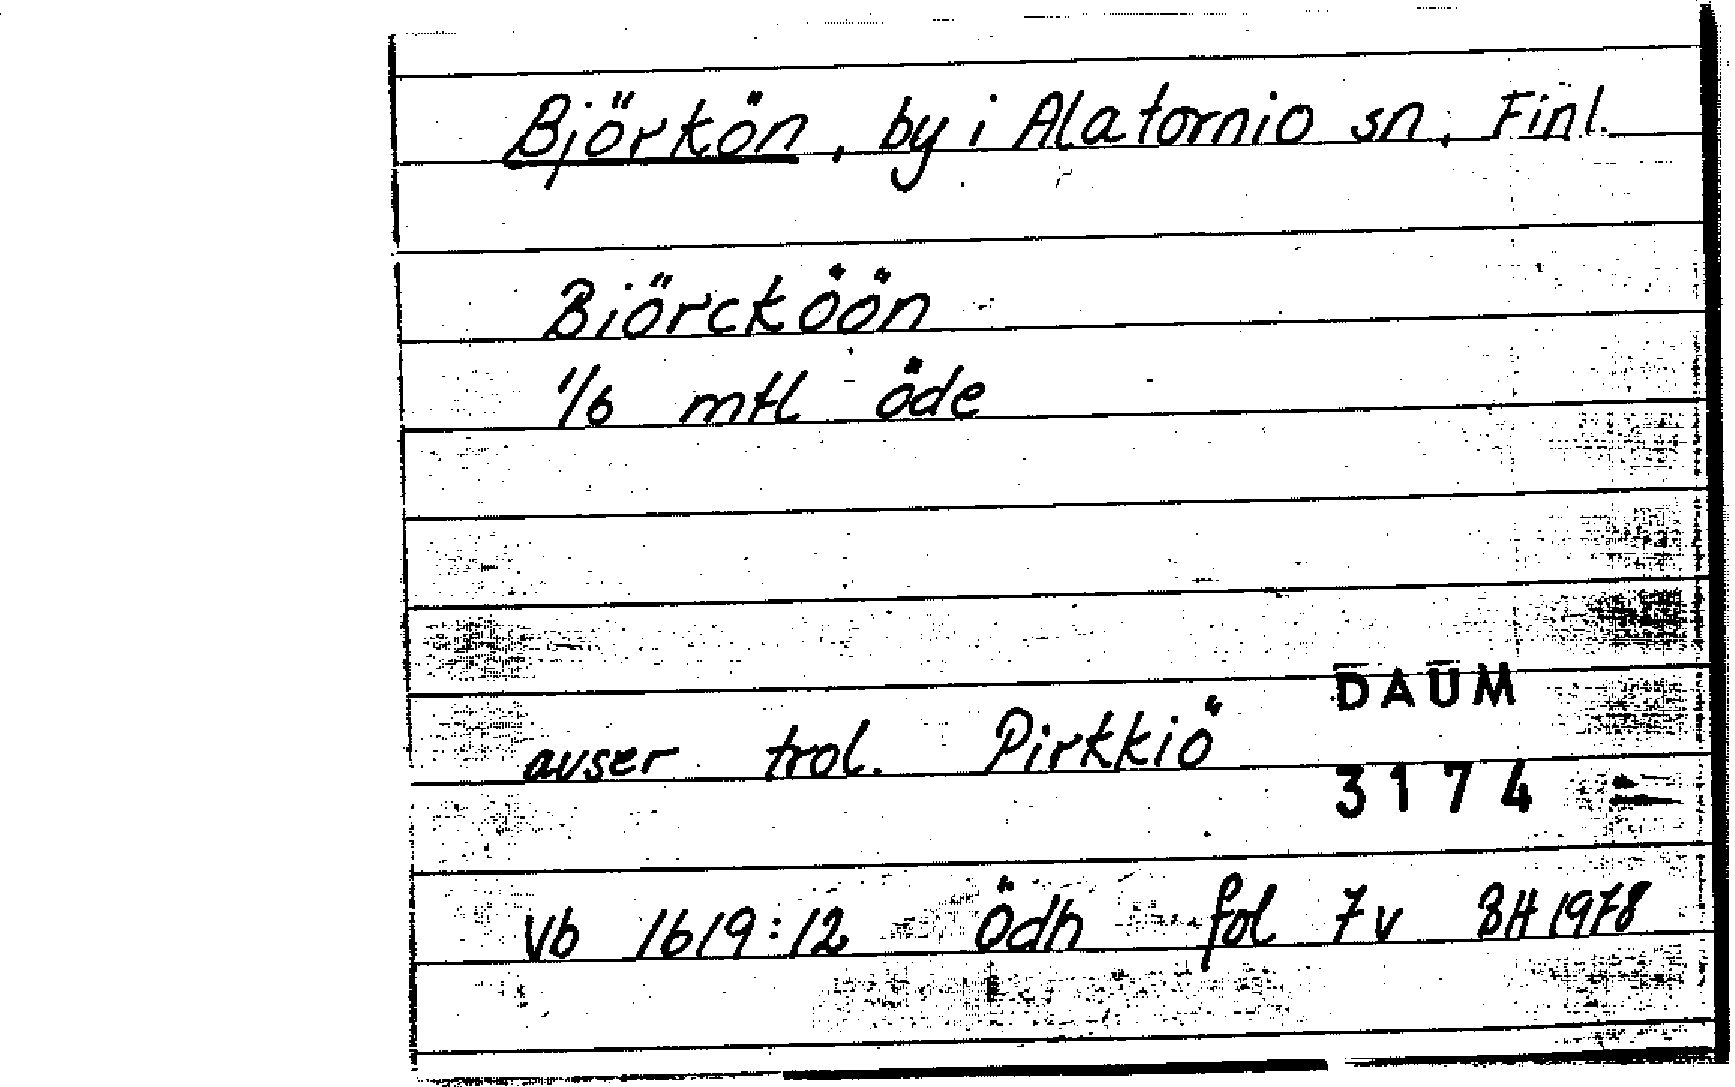 Björkön, by i Alatornio sn, Finl.
Biörcköön
1/6 mtl öde
DAUM
avser trol. Pirkkiö
3174
Vb 1619:12 Ödh fol 7v BH 1978